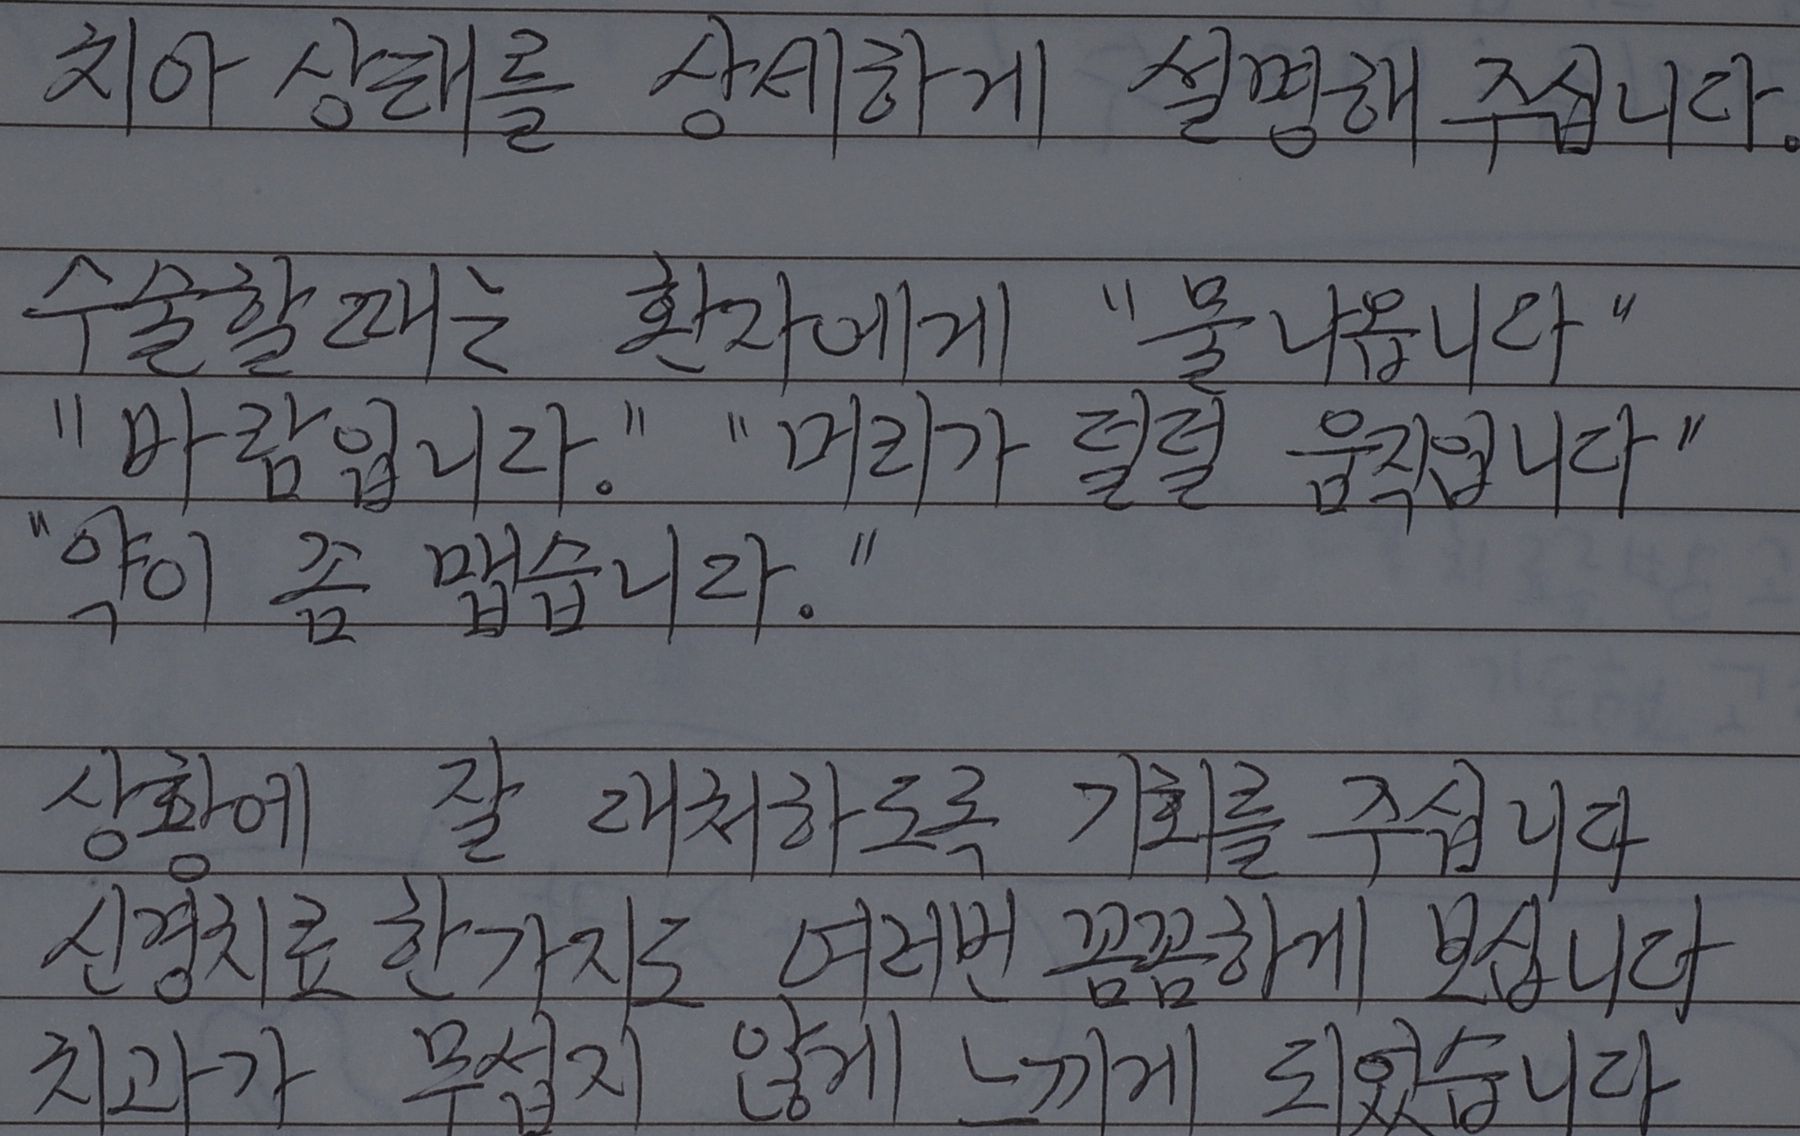 치아 상태를 상세하게 설명해 주십니다.
수술할때는 환자에게 "물 나옵니다"
"바람입니다." "머리가 덜덜 움직입니다"
"약이 쫌 맵습니다."
상황에 잘 대처하도록 기회를 주십니다
신경치료 한가지도 여러번 꼼꼼하게 보십니다
치과가 무섭지 않게 느끼게 되었습니다